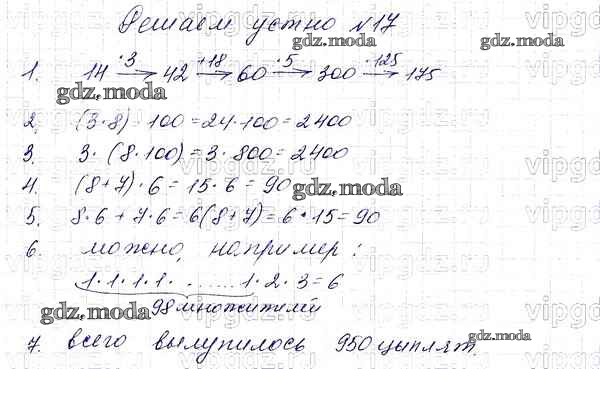 Решаем устно №17
gdz.moda
1. 14 ·3→ 42 +18→ 60 ·5→ 300 ·125→ 175
gdz.moda
2. (3·8)·100=24·100=2400
3. 3·(8·100)=3·800=2400
4. (8+7)·6=15·6=90 gdz.moda
5. 8·6+7·6=6(8+7)=6·15=90
6. можно, например:
1·1·1·1·.......1·2·3=6
gdz.moda 98 множителей
7. всего вылупилось 950 цыплят.
gdz.moda